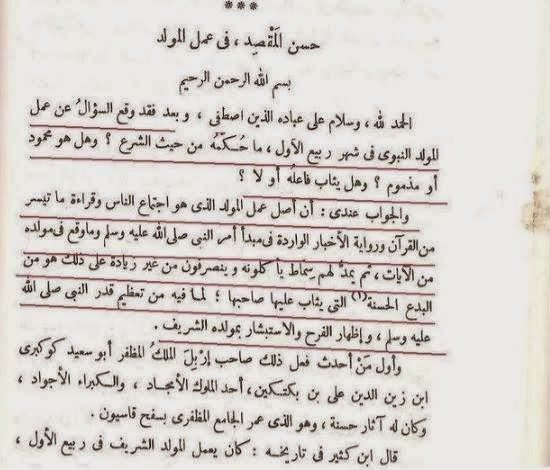 ***
حسن المَقْصِد ، فى عمل المولد
بسم الله الرحمن الرحيم
الحمد لله ، وسلام على عباده الذين اصطفى ، و بعد فقد وقع السؤالُ عن عمل
المولد النبوى فى شهر ربيع الأول ، ما حُكمُه من حيث الشرع ؟ وهل هو محمود
أو مذموم ؟ وهل يثاب فاعلُه أو لا ؟
والجواب عندى : أن أصل عمل المولد الذى هو اجتماع الناس وقراءة ما تيسر
من القرآن ورواية الأخبار الواردة فى مبدأ أمر النبى صلى الله عليه وسلم وما وقع فى مولده
من الآيات ، ثم يمدُّ لهم سماط يأكلونه و ينصرفون من غير زيادة على ذلك هو من
البدع الحسنة (١) التى يثاب عليها صاحبها ؛ لما فيه من تعظيم قدر النبى صلى الله
عليه وسلم ، و إظهار الفرح والاستبشار بمولده الشريف .
وأول مَنْ أحدث فعل ذلك صاحب إرْبِلَ الملكُ المظفر أبو سعيد كوكبرى
ابن زين الدين على بن بكتكين، أحد الملوك الأمجاد ، والكبراء الأجواد ،
وكان له آثار حسنة ، وهو الذى عمر الجامع المظفرى بسفح قاسيون .
قال ابن كثير فى تاريخه : كان يعمل المولد الشريف فى ربيع الأول ،